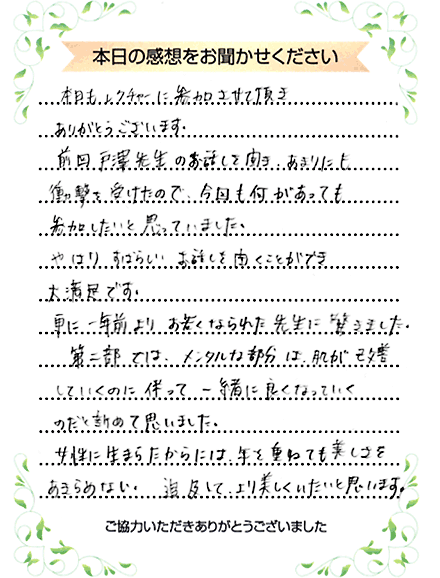 本日の感想をお聞かせください
本日もレクチャーに参加させて頂き
ありがとうございます。
前回戸澤先生のお話しを聞き、あまりにも
衝撃を受けたので、今回も何があっても
参加したいと思っていました。
やはりすばらしいお話しを聞くことができ
大満足です。
更に一年前よりお若くなられた先生に驚きました。
第二部では、メンタルな部分は、肌が改善
していくのに伴って一緒に良くなっていく
のだと改めて思いました。
女性に生まれたからには、年を重ねても美しさを
あきらめない。 して、より美しくいたいと思います。
ご協力いただきありがとうございました